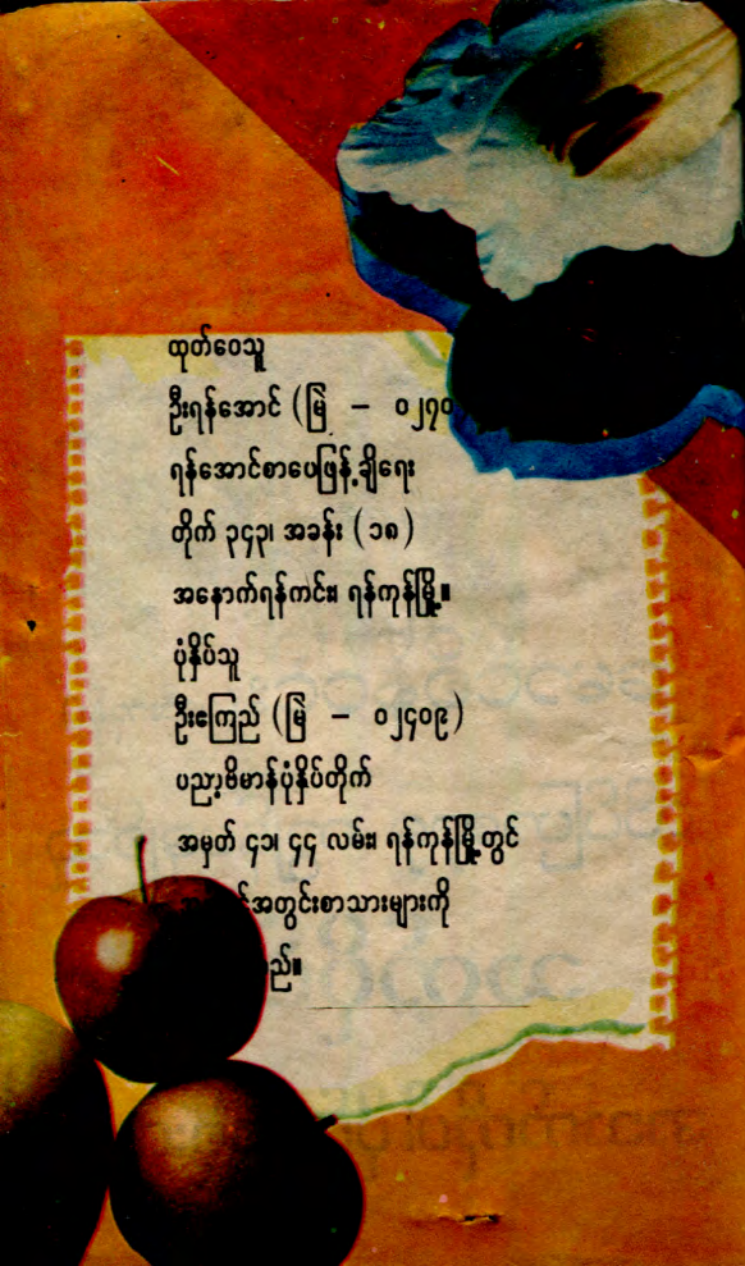 ထုတ်ဝေသူ
ဦးရန်အောင် (မြဲ – ၀၂၇၀
ရန်အောင်စာပေဖြန့်ချိရေး
တိုက် ၃၄၃၊ အခန်း (၁၈)
အနောက်ရန်ကင်း၊ ရန်ကုန်မြို့။
ပုံနှိပ်သူ
ဦးကြည် (မြဲ – ၀၂၄၀၉)
ပညာ့ဗိမာန်ပုံနှိပ်တိုက်
အမှတ် ၄၁၊ ၄၄ လမ်း၊ ရန်ကုန်မြို့တွင်
အတွင်းစာသားများကို
သည်။